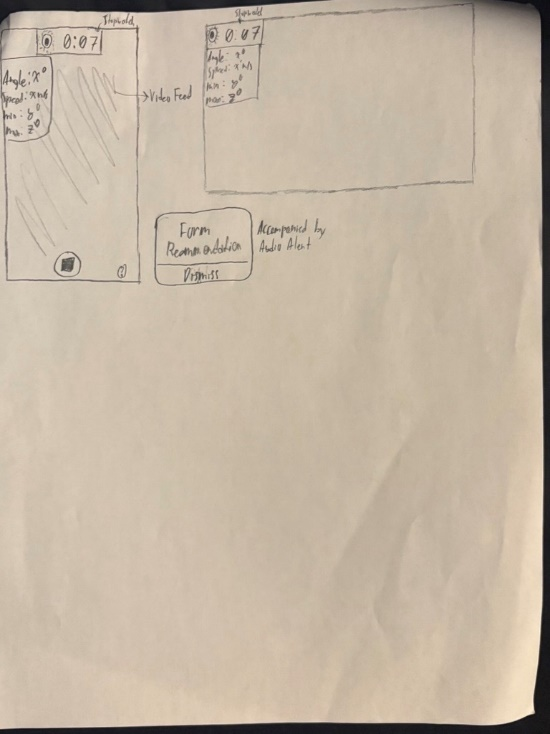 0:07
Angle: x°
Speed: x m/s
min: y°
max: z°
Video Feed
Stopwatch
0:07
Angle: x°
Speed: x m/s
min: y°
max: z°
Form
Recommendation
Dismiss
Accompanied by
Audio Alert